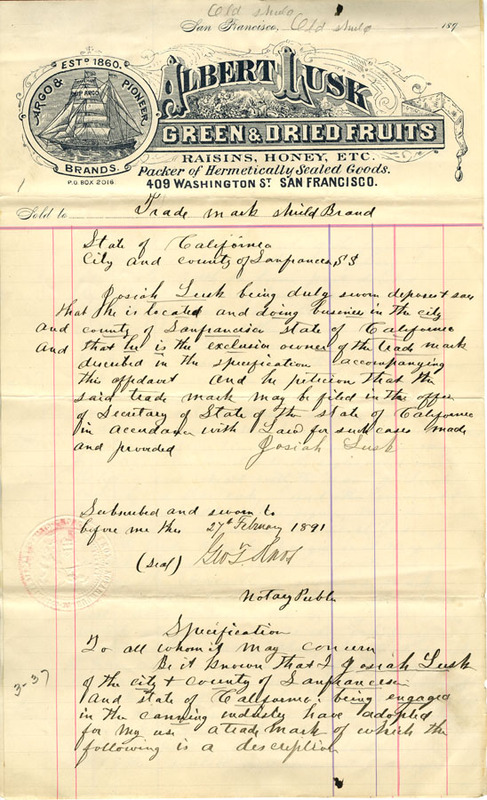 Old Shield
San Francisco, Old Shield 187
ESTD 1860.
ARGO & PIONEER
SHIP ARGO
BRANDS.
P.O. BOX 2016
ALBERT LUSK
GREEN & DRIED FRUITS
RAISINS, HONEY, ETC.
Packer of Hermetically Sealed Goods.
409 WASHINGTON ST. SAN FRANCISCO.
Sold to Trade mark Shield Brand
State of California
City and county of Sanfrancisco SS
Josiah Lusk being duly sworn deposes & says
that he is located and doing business in the city
and county of Sanfrancisco state of California
and that he is the exclusive owner of the trade mark
described in the specification accompanying
this affidavit and he petition that the
said trade mark may be filed in the office
of Secretary of State of the state of California
in accordance with Law for such cases made
and provided Josiah Lusk
Subscribed and sworn to
before me this 27th February 1891
(Seal) Geo T. Knox
Notary Public
Specification
To all whom it may concern
Be it known that I Josiah Lusk
of the city & county of Sanfrancisco
3-37
and state of California being engaged
in the canning industry have adopted
for my use a trade mark of which the
following is a description